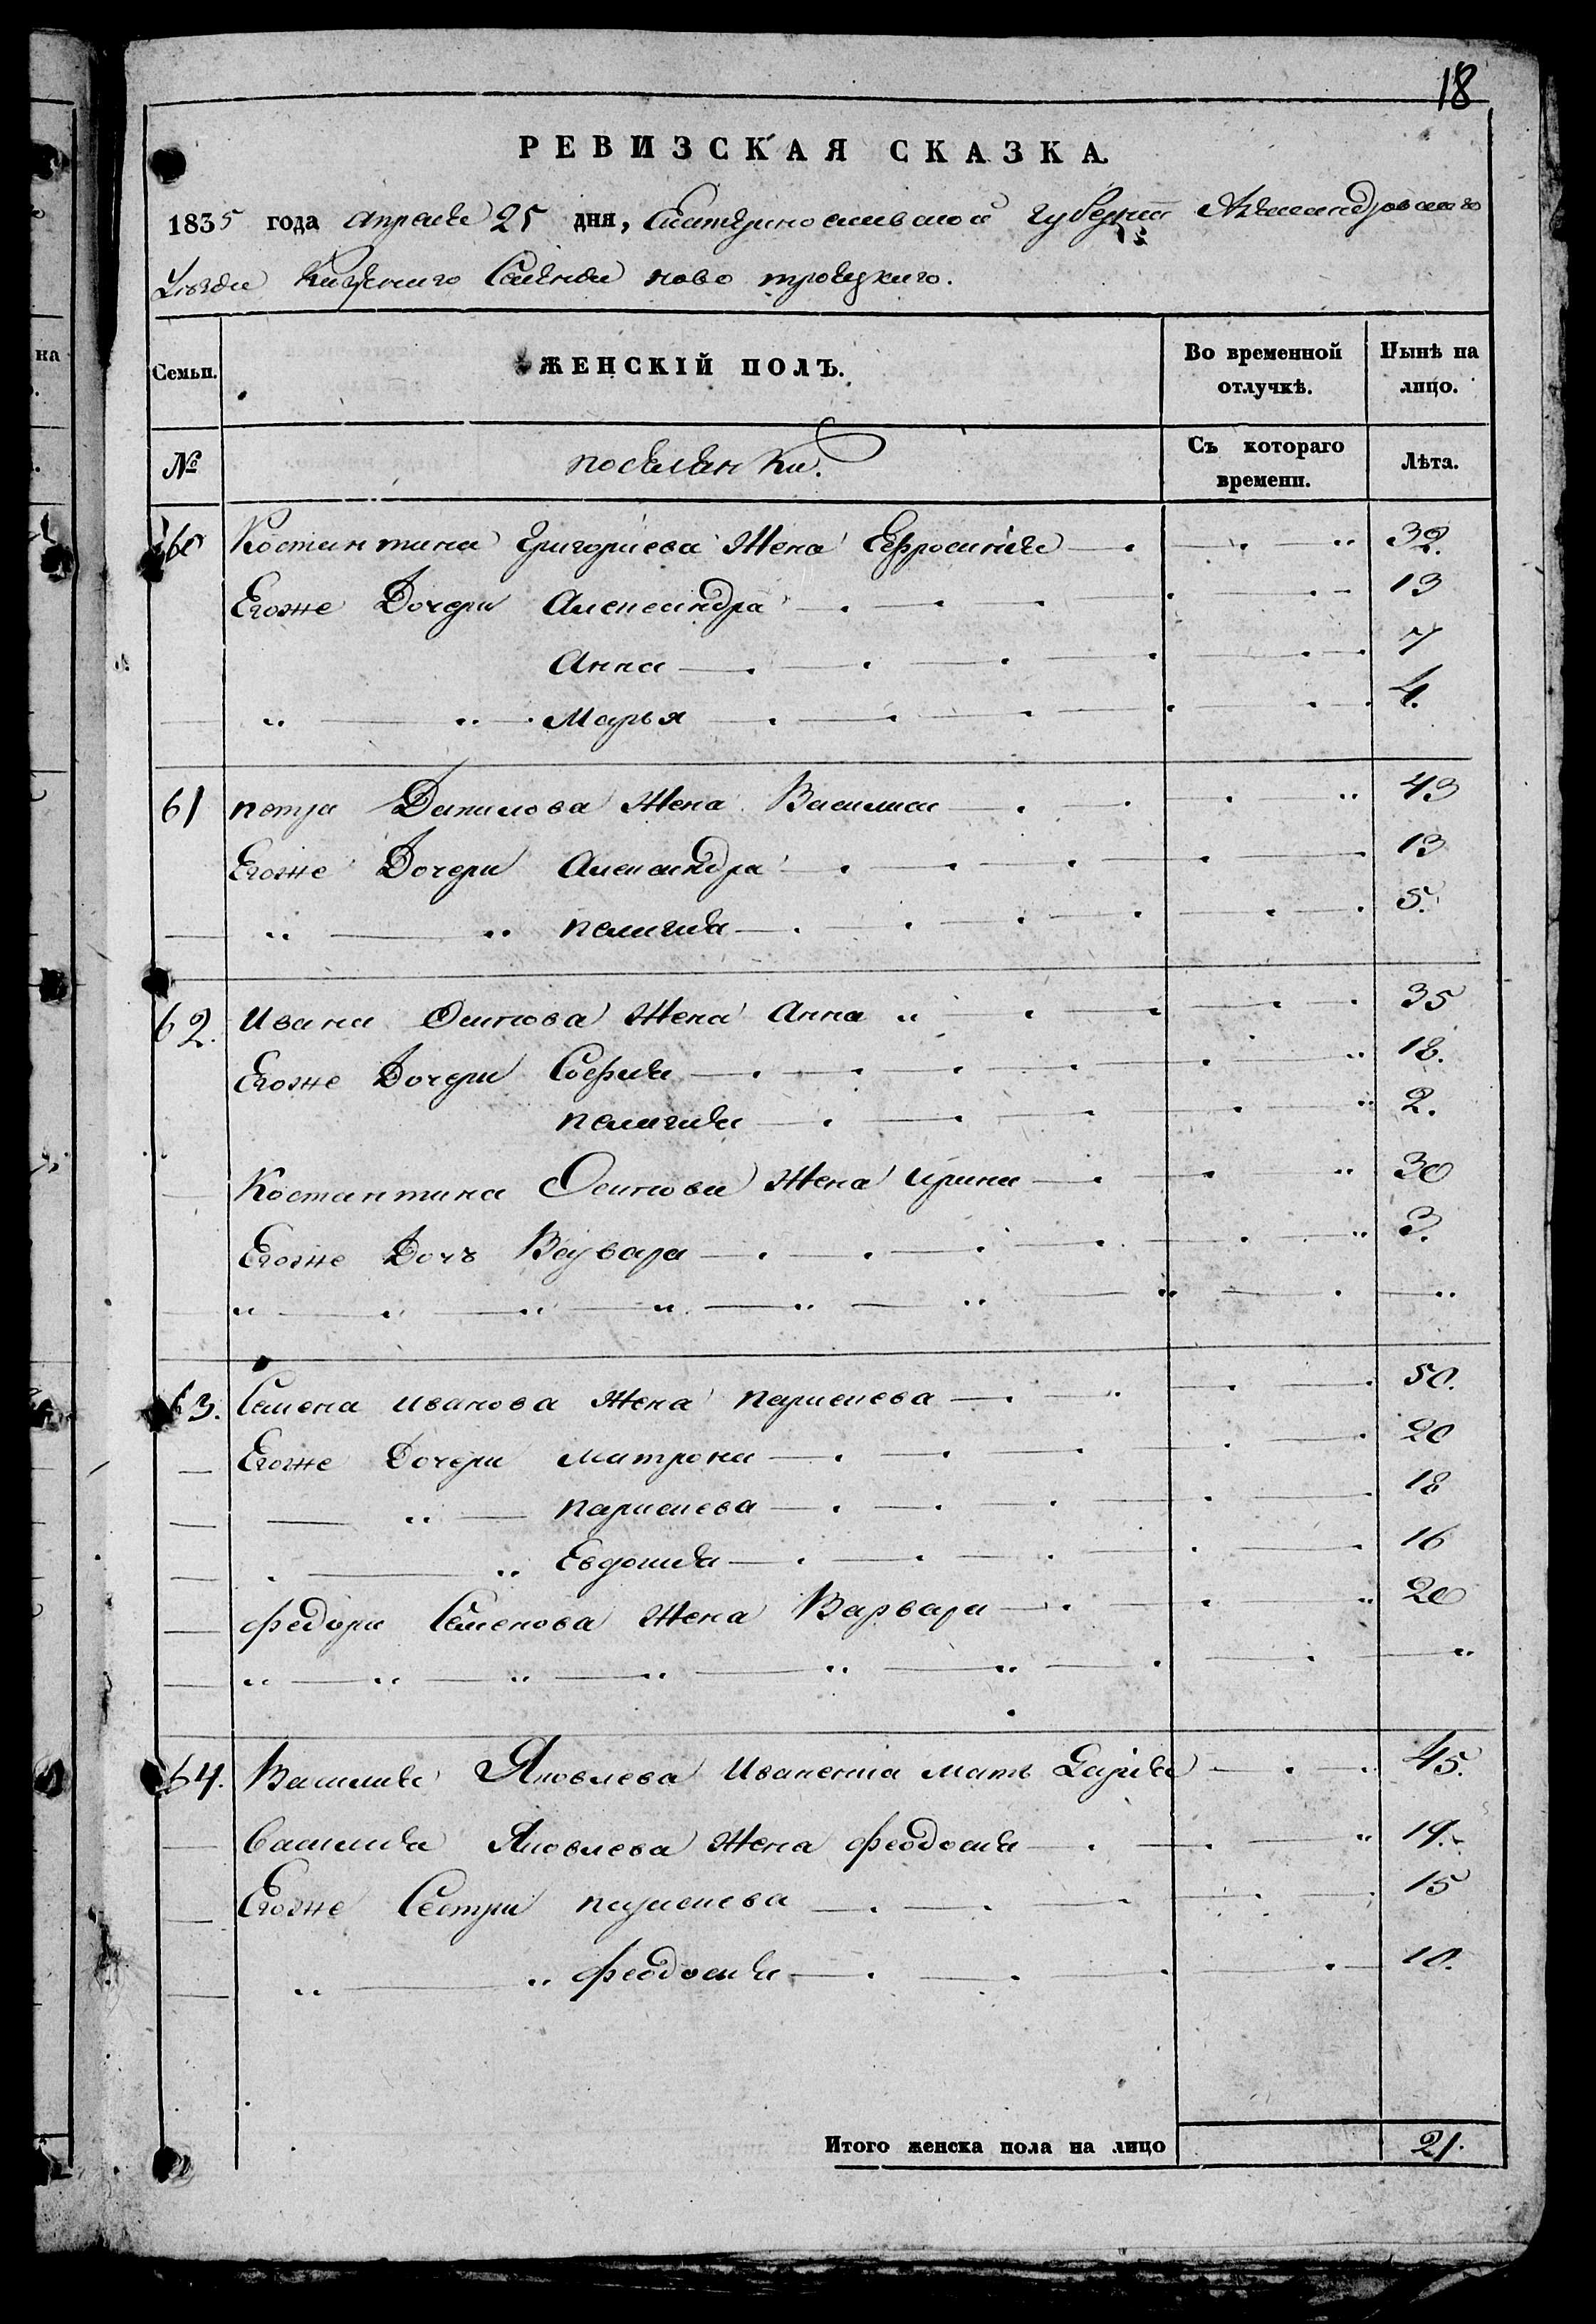 18
РЕВИЗСКАЯ СКАЗКА.
1835 года апреля 25 дня, Екатеринославской губернии Александровского
Уезда Казенного Селения ново троецкаго.
Семьи. ЖЕНСКІЙ ПОЛЪ. Во временной отлучкѣ. Нынѣ на лицо.
№ поселенки. Съ котораго времени. Лѣта.
60 Костантина Григориева Жена Ефросиния 32.
Егоже Дочери Александра 13
Анна 7
" " Марья 4.
61 петра Данилова Жена Василиса 43
Егоже Дочери Александра 13
" " пелагия 5.
62. Ивана Осипова Жена Анна " 35
Егоже Дочери София " 18.
пелагия " 2.
Костантина Осипова Жена ирина " 30
Егоже Дочь Варвара " 3.
63. Семена иванова Жена параскева 50.
Егоже Дочери матрона 20
" параскева 18
" Евдокия 16
федора Семенова Жена Варвара " 20
64. Василия Яковлева Иваненка мать Дарія 45.
василия Яковлева Жена феодосия " 19.
Егоже Сестри параскева 15
" " феодосия 10.
Итого женска пола на лицо 21.